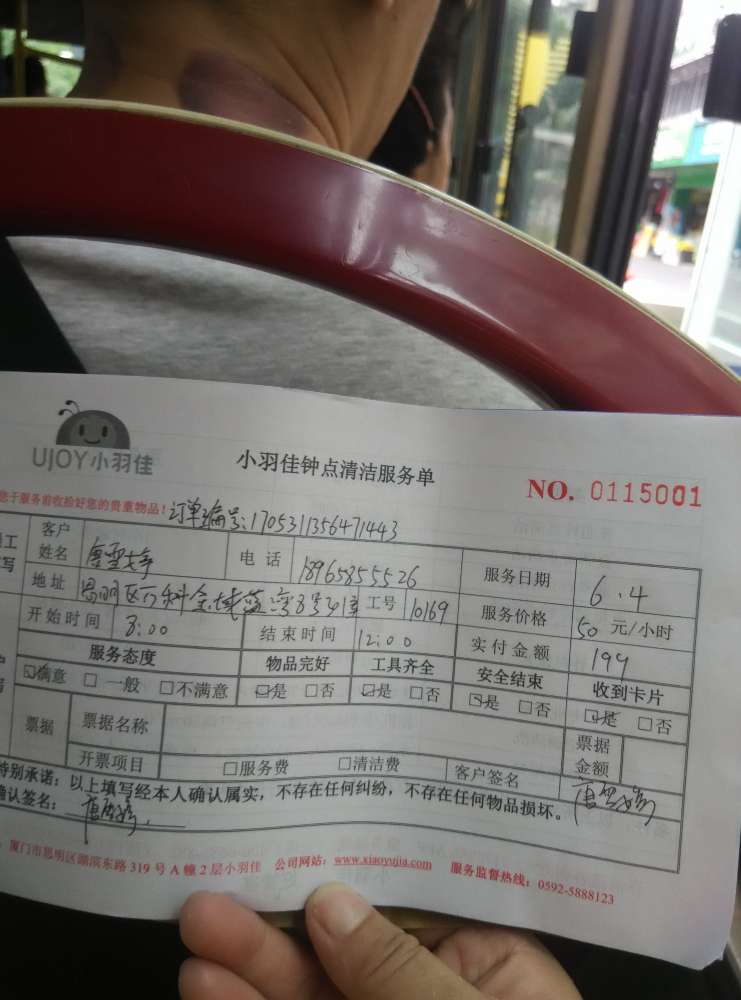 UJOY小羽佳
小羽佳钟点清洁服务单
NO. 0115001
您于服务前收拾好您的贵重物品! 订单编号:1705311356471443
客户姓名 电话 18965855526 服务日期 6.4
地址 万科金域蓝湾8号 工号 10169 服务价格 50 元/小时
开始时间 8:00 结束时间 12:00 实付金额 199
服务态度 物品完好 工具齐全 安全结束 收到卡片
☑满意 □一般 □不满意 ☑是 □否 ☑是 □否 ☑是 □否 ☑是 □否
票据 票据名称 票据金额
开票项目 □服务费 □清洁费 客户签名
特别承诺：以上填写经本人确认属实，不存在任何纠纷，不存在任何物品损坏。
确认签名：
厦门市思明区湖滨东路 319 号 A 幢 2 层小羽佳 公司网站：www.xiaoyujia.com 服务监督热线：0592-5888123